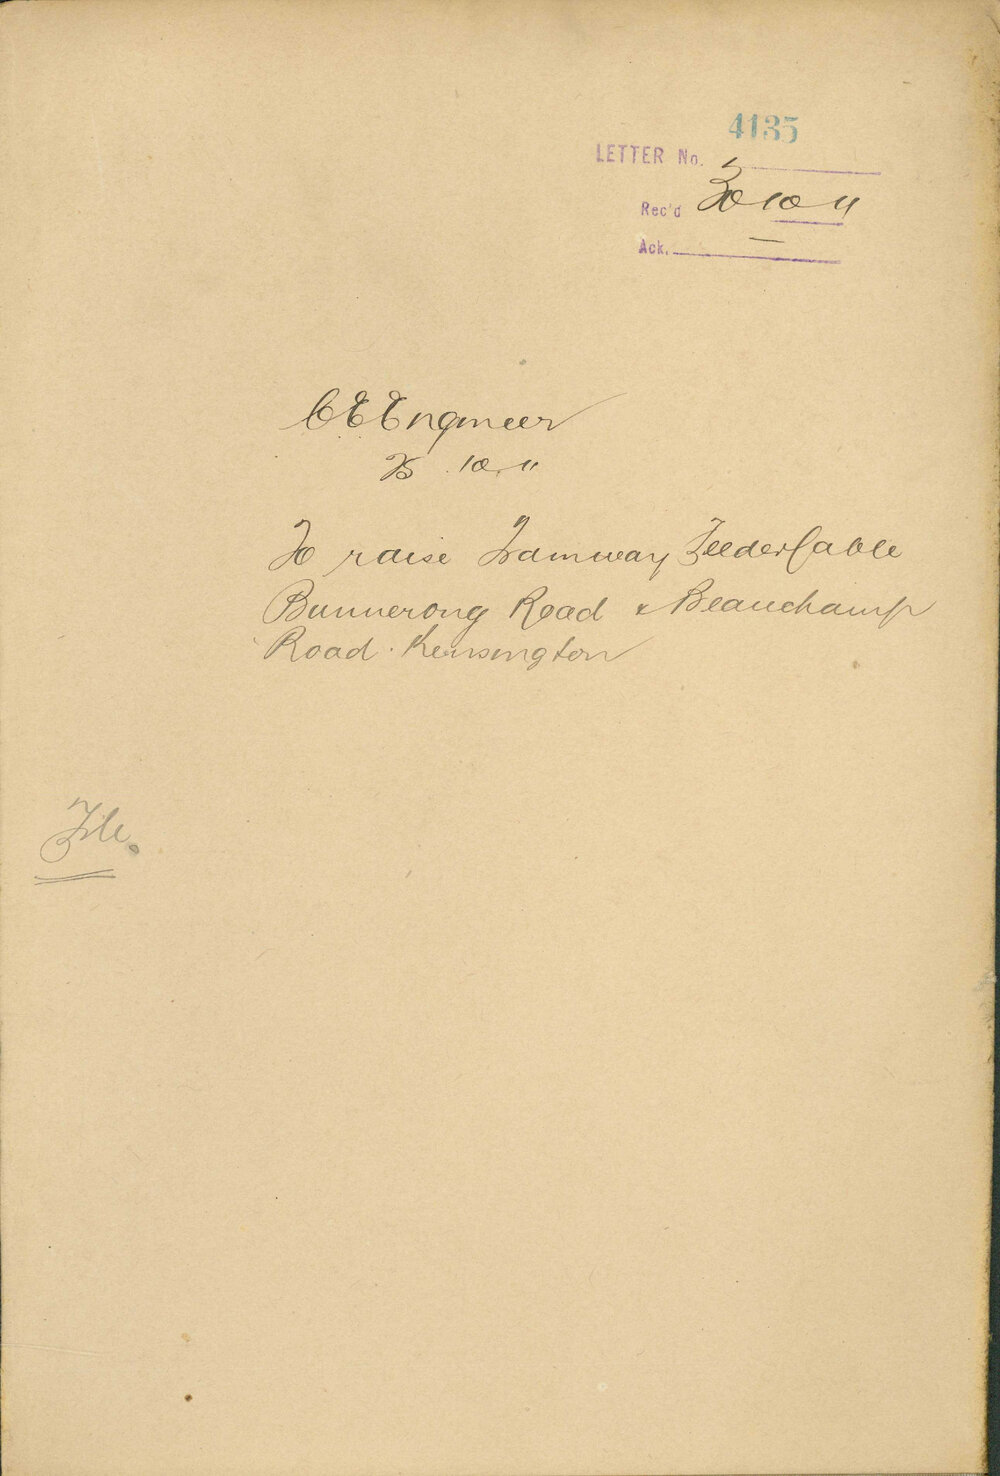 4135
LETTER No.
Rec'd 30 10 11
Ack. —
C E Engineer
10. 11
To raise Tramway Feeder Cable
Bunnerong Road & Beauchamp
Road. Kensington
File.